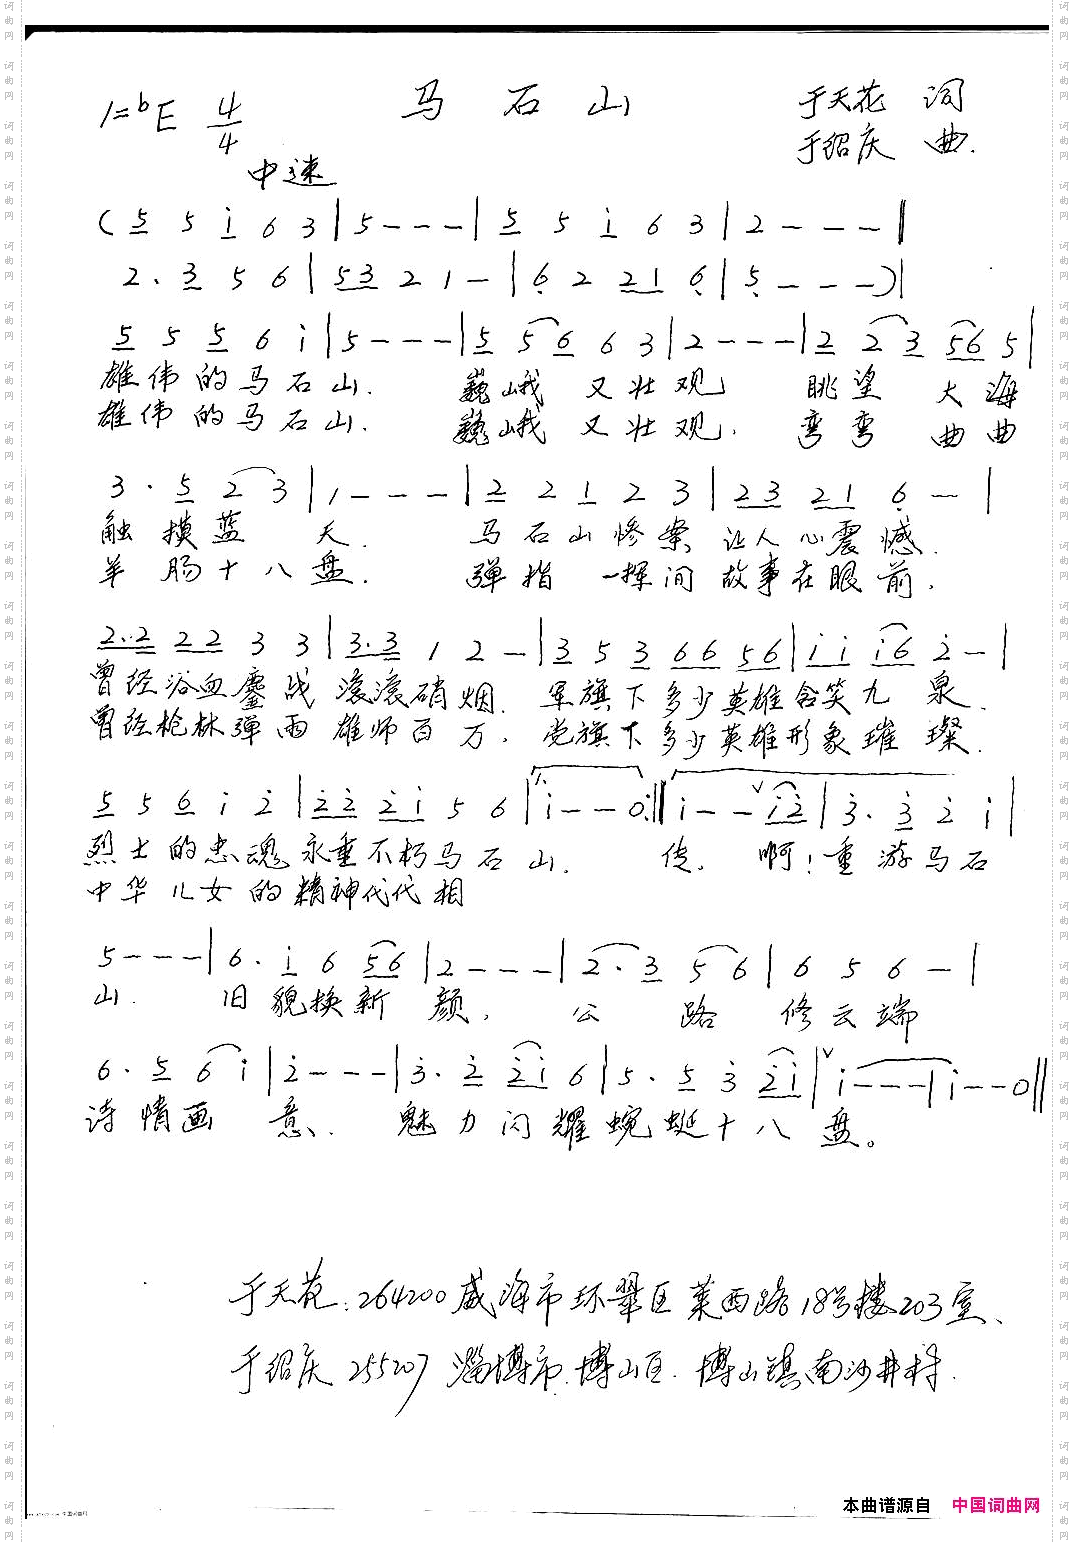 马石山
于天花 词
1=bE 4/4
于绍庆 曲.
中速
( 5 5 i 6 3 | 5 - - - | 5 5 i 6 3 | 2 - - - ‖
2. 3 5 6 | 5 3 2 1 - | 6 2 2 1 6 | 5 - - - ) |
5 5 5 6 i | 5 - - - | 5 5 6 6 3 | 2 - - - | 2 2 3 5 6 5 |
雄伟的马石山. 巍峨又壮观 眺望大海
雄伟的马石山. 巍峨又壮观. 弯弯曲曲
3 · 5 2 3 | 1 - - - | 2 2 1 2 3 | 2 3 2 1 6 - |
触摸蓝天. 马石山惨案 让人心震憾.
羊肠十八盘. 弹指一挥间 故事在眼前.
2. 2 2 2 3 3 | 3. 3 1 2 - | 3 5 3 6 6 5 6 | i i i 6 2 - |
曾经浴血鏖战 滚滚硝烟. 军旗下多少英雄含笑九泉.
曾经枪林弹雨 雄师百万. 党旗下多少英雄形象璀璨.
5 5 6 i 2 | 2 2 2 i 5 6 | i - - 0 :‖ i - - i 2 | 3. 3 2 i |
烈士的忠魂永垂不朽马石山. 传. 啊!重游马石
中华儿女的精神代代相
5 - - - | 6. i 6 5 6 | 2 - - - | 2. 3 5 6 | 6 5 6 - |
山. 旧貌换新颜. 公路修云端
6. 5 6 i | 2 - - - | 3. 2 2 i 6 | 5. 5 3 2 i | i - - - | i - - 0 ‖
诗情画意. 魅力闪耀蜿蜒十八盘。
于天花:264200威海市环翠区莱西路18号楼203室、
于绍庆 255207 淄博市.博山区.博山镇南沙井村.
本曲谱源自 中国词曲网